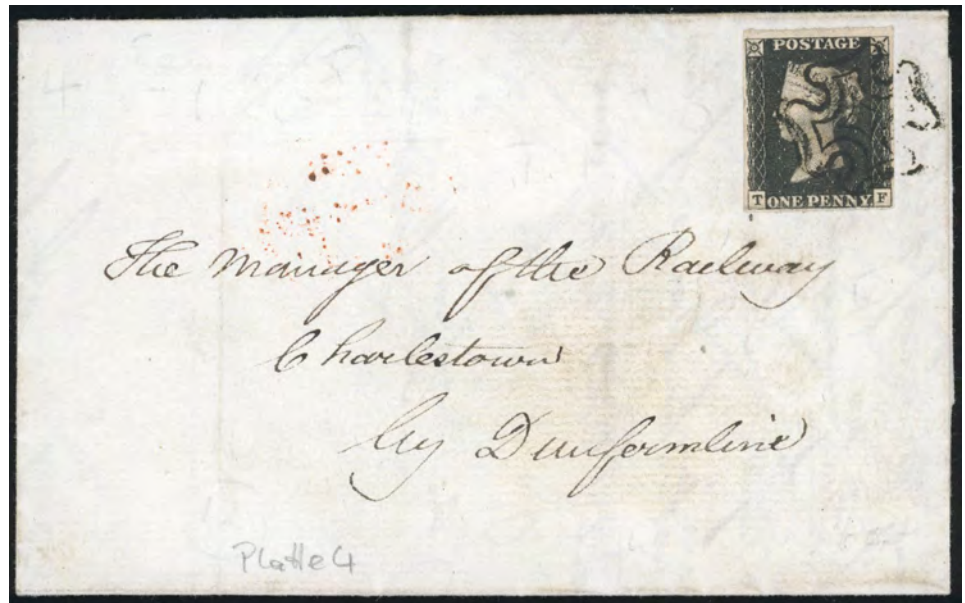 POSTAGE
T ONE PENNY F
The Manager of the Railway
Charlestown
by Dunfermline
Platte 4